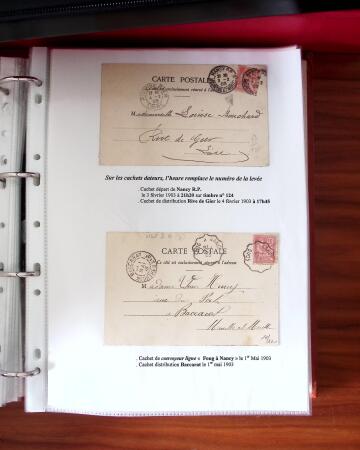 CARTE POSTALE
Ce côté est exclusivement réservé à l'adresse
Mademoiselle Louise Bouchard
Rive de Gier
Loire
Sur les cachets dateurs, l'heure remplace le numéro de la levée
. Cachet départ de Nancy R.P.
le 3 février 1903 à 21h30 sur timbre n° 124
. Cachet de distribution Rive de Gier le 4 février 1903 à 17h45
CARTE POSTALE
Ce côté est exclusivement réservé à l'adresse
Madame
rue du Port
à Baccarat
Meurthe et Moselle
. Cachet de convoyeur ligne « Foug à Nancy » le 1er Mai 1903
. Cachet distribution Baccarat le 1er mai 1903